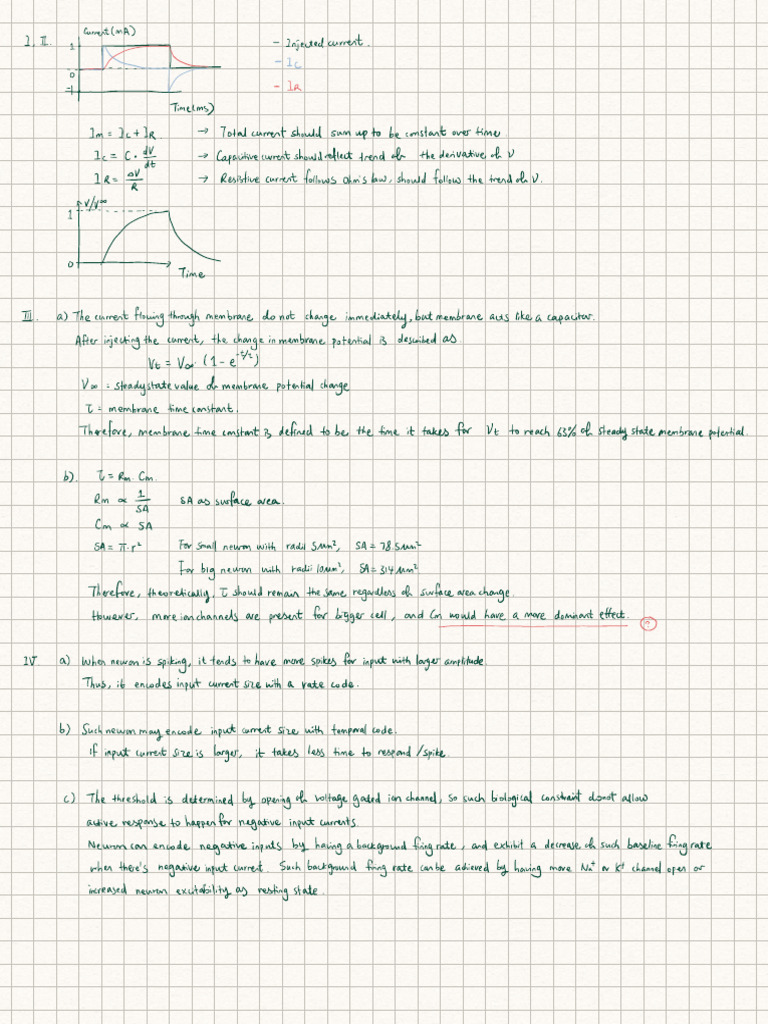 I, II.
Current (mA)
1
0
-1
Time(ms)
- Injected current.
- Ic
- IR
Im = Ic + IR → Total current should sum up to be constant over time.
Ic = C · dV/dt → Capacitive current should reflect trend of the derivative of V
IR = ΔV/R → Resistive current follows Ohm's law, should follow the trend of V.
V/V∞
1
0
Time
III. a) The current flowing through membrane do not change immediately, but membrane acts like a capacitor.
After injecting the current, the change in membrane potential is described as
Vt = V∞ (1 - e^-t/τ)
V∞ = steady state value of membrane potential change
τ = membrane time constant.
Therefore, membrane time constant is defined to be the time it takes for Vt to reach 63% of steady state membrane potential.
b). τ = Rm · Cm.
Rm ∝ 1/SA SA as surface area.
Cm ∝ SA
SA = π·r² For small neuron with radii 5μm², SA = 78.5μm²
For big neuron with radii 10μm², SA = 314μm²
Therefore, theoretically, τ should remain the same regardless of surface area change.
However, more ion channels are present for bigger cell, and Cm would have a more dominant effect. ?
IV a) When neuron is spiking, it tends to have more spikes for input with larger amplitude.
Thus, it encodes input current size with a rate code.
b) Such neuron may encode input current size with temporal code.
If input current size is larger, it takes less time to respond/spike.
c) The threshold is determined by opening of voltage gated ion channel, so such biological constraint donot allow
active response to happen for negative input currents.
Neuron can encode negative inputs by having a background firing rate, and exhibit a decrease of such baseline firing rate
when there's negative input current. Such background firing rate can be achieved by having more Na+ or K+ channel open or
increased neuron excitability as resting state.